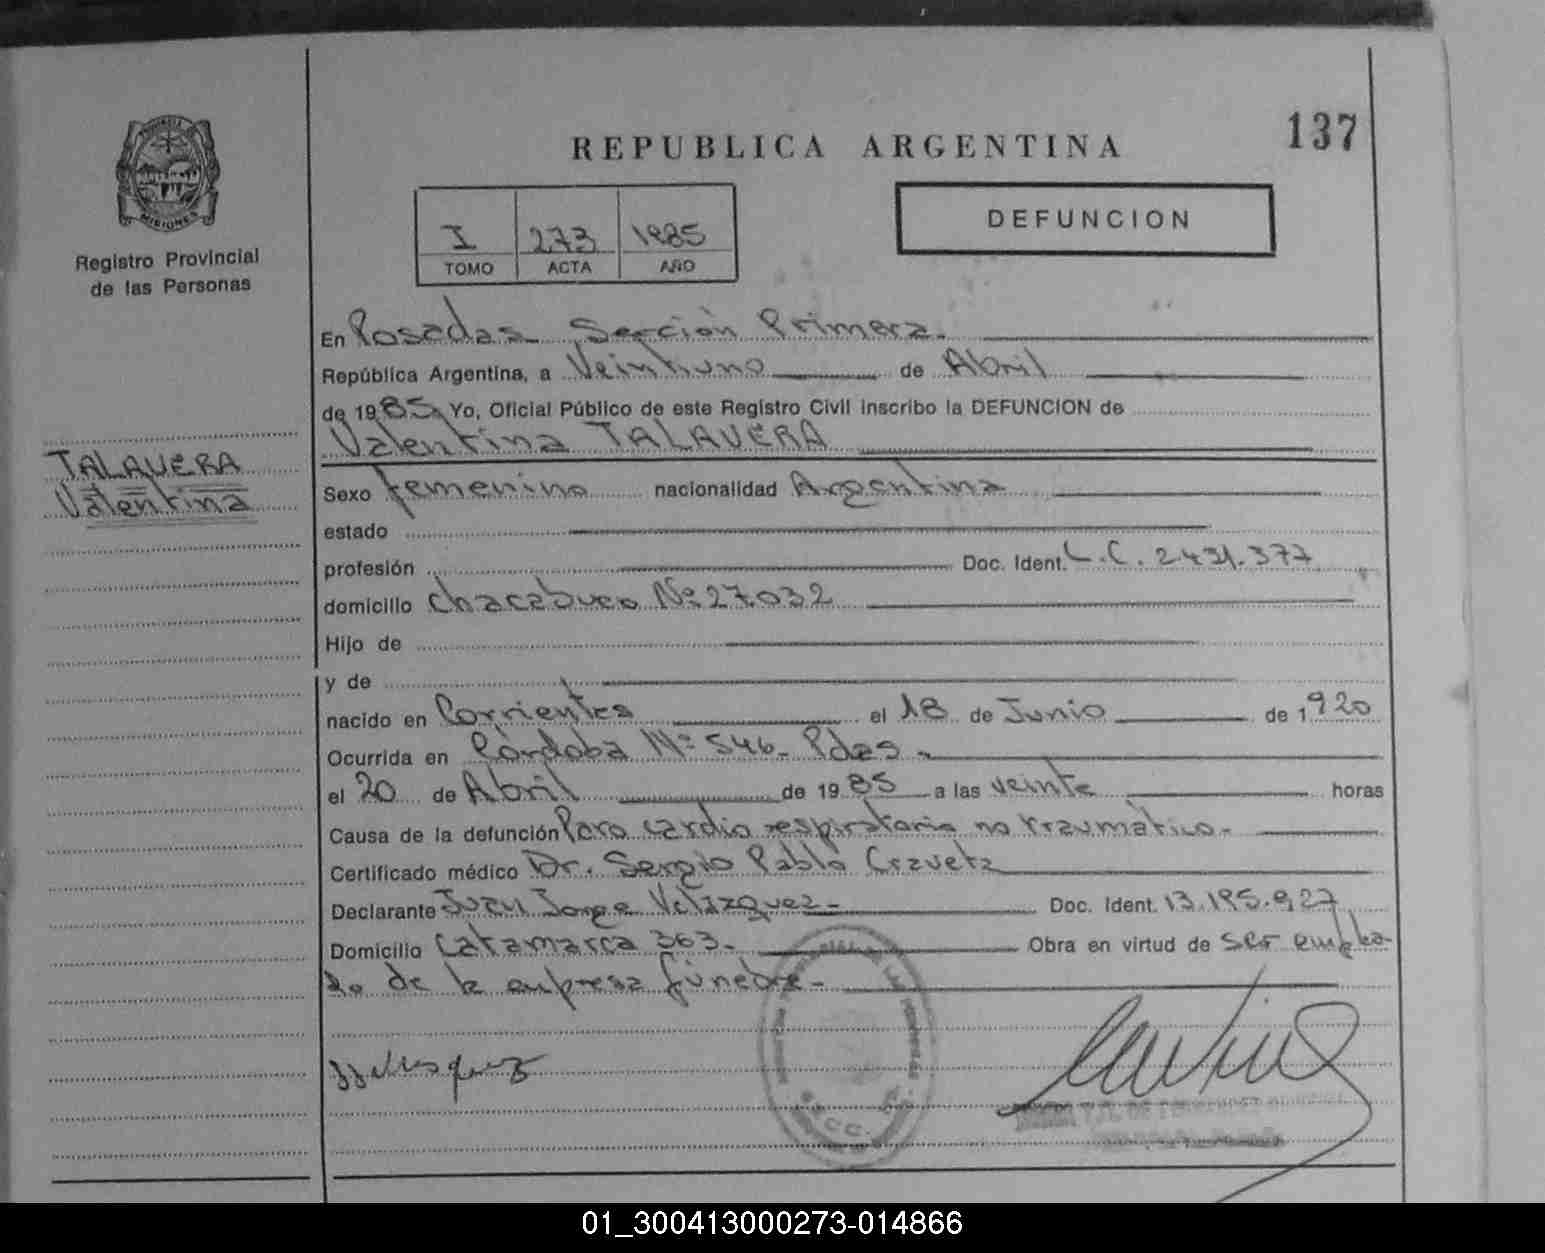 137
REPUBLICA ARGENTINA
PROVINCIA DE
MISIONES
Registro Provincial
de las Personas
I 273 1985
TOMO ACTA AÑO
DEFUNCION
TALAVERA
Valentina
En Posadas Sección Primera.
República Argentina, a Veintiuno de Abril
de 1985, Yo, Oficial Público de este Registro Civil inscribo la DEFUNCION de
Valentina TALAVERA
Sexo femenino nacionalidad Argentina
estado
profesión Doc. Ident. L.C. 2.431.377
domicilio Chacabuco Nº 27.032
Hijo de
y de
nacido en Corrientes el 18 de Junio de 1920
Ocurrida en Córdoba Nº 546- Pdas -
el 20 de Abril de 1985 a las veinte horas
Causa de la defunción Paro cardio respiratorio no traumático.-
Certificado médico Dr. Sergio Pablo
Declarante Juan Jorge Velazquez- Doc. Ident. 13.195.927
Domicilio Catamarca 363.- Obra en virtud de ser emplea-
do de la empresa fúnebre-
01_300413000273-014866